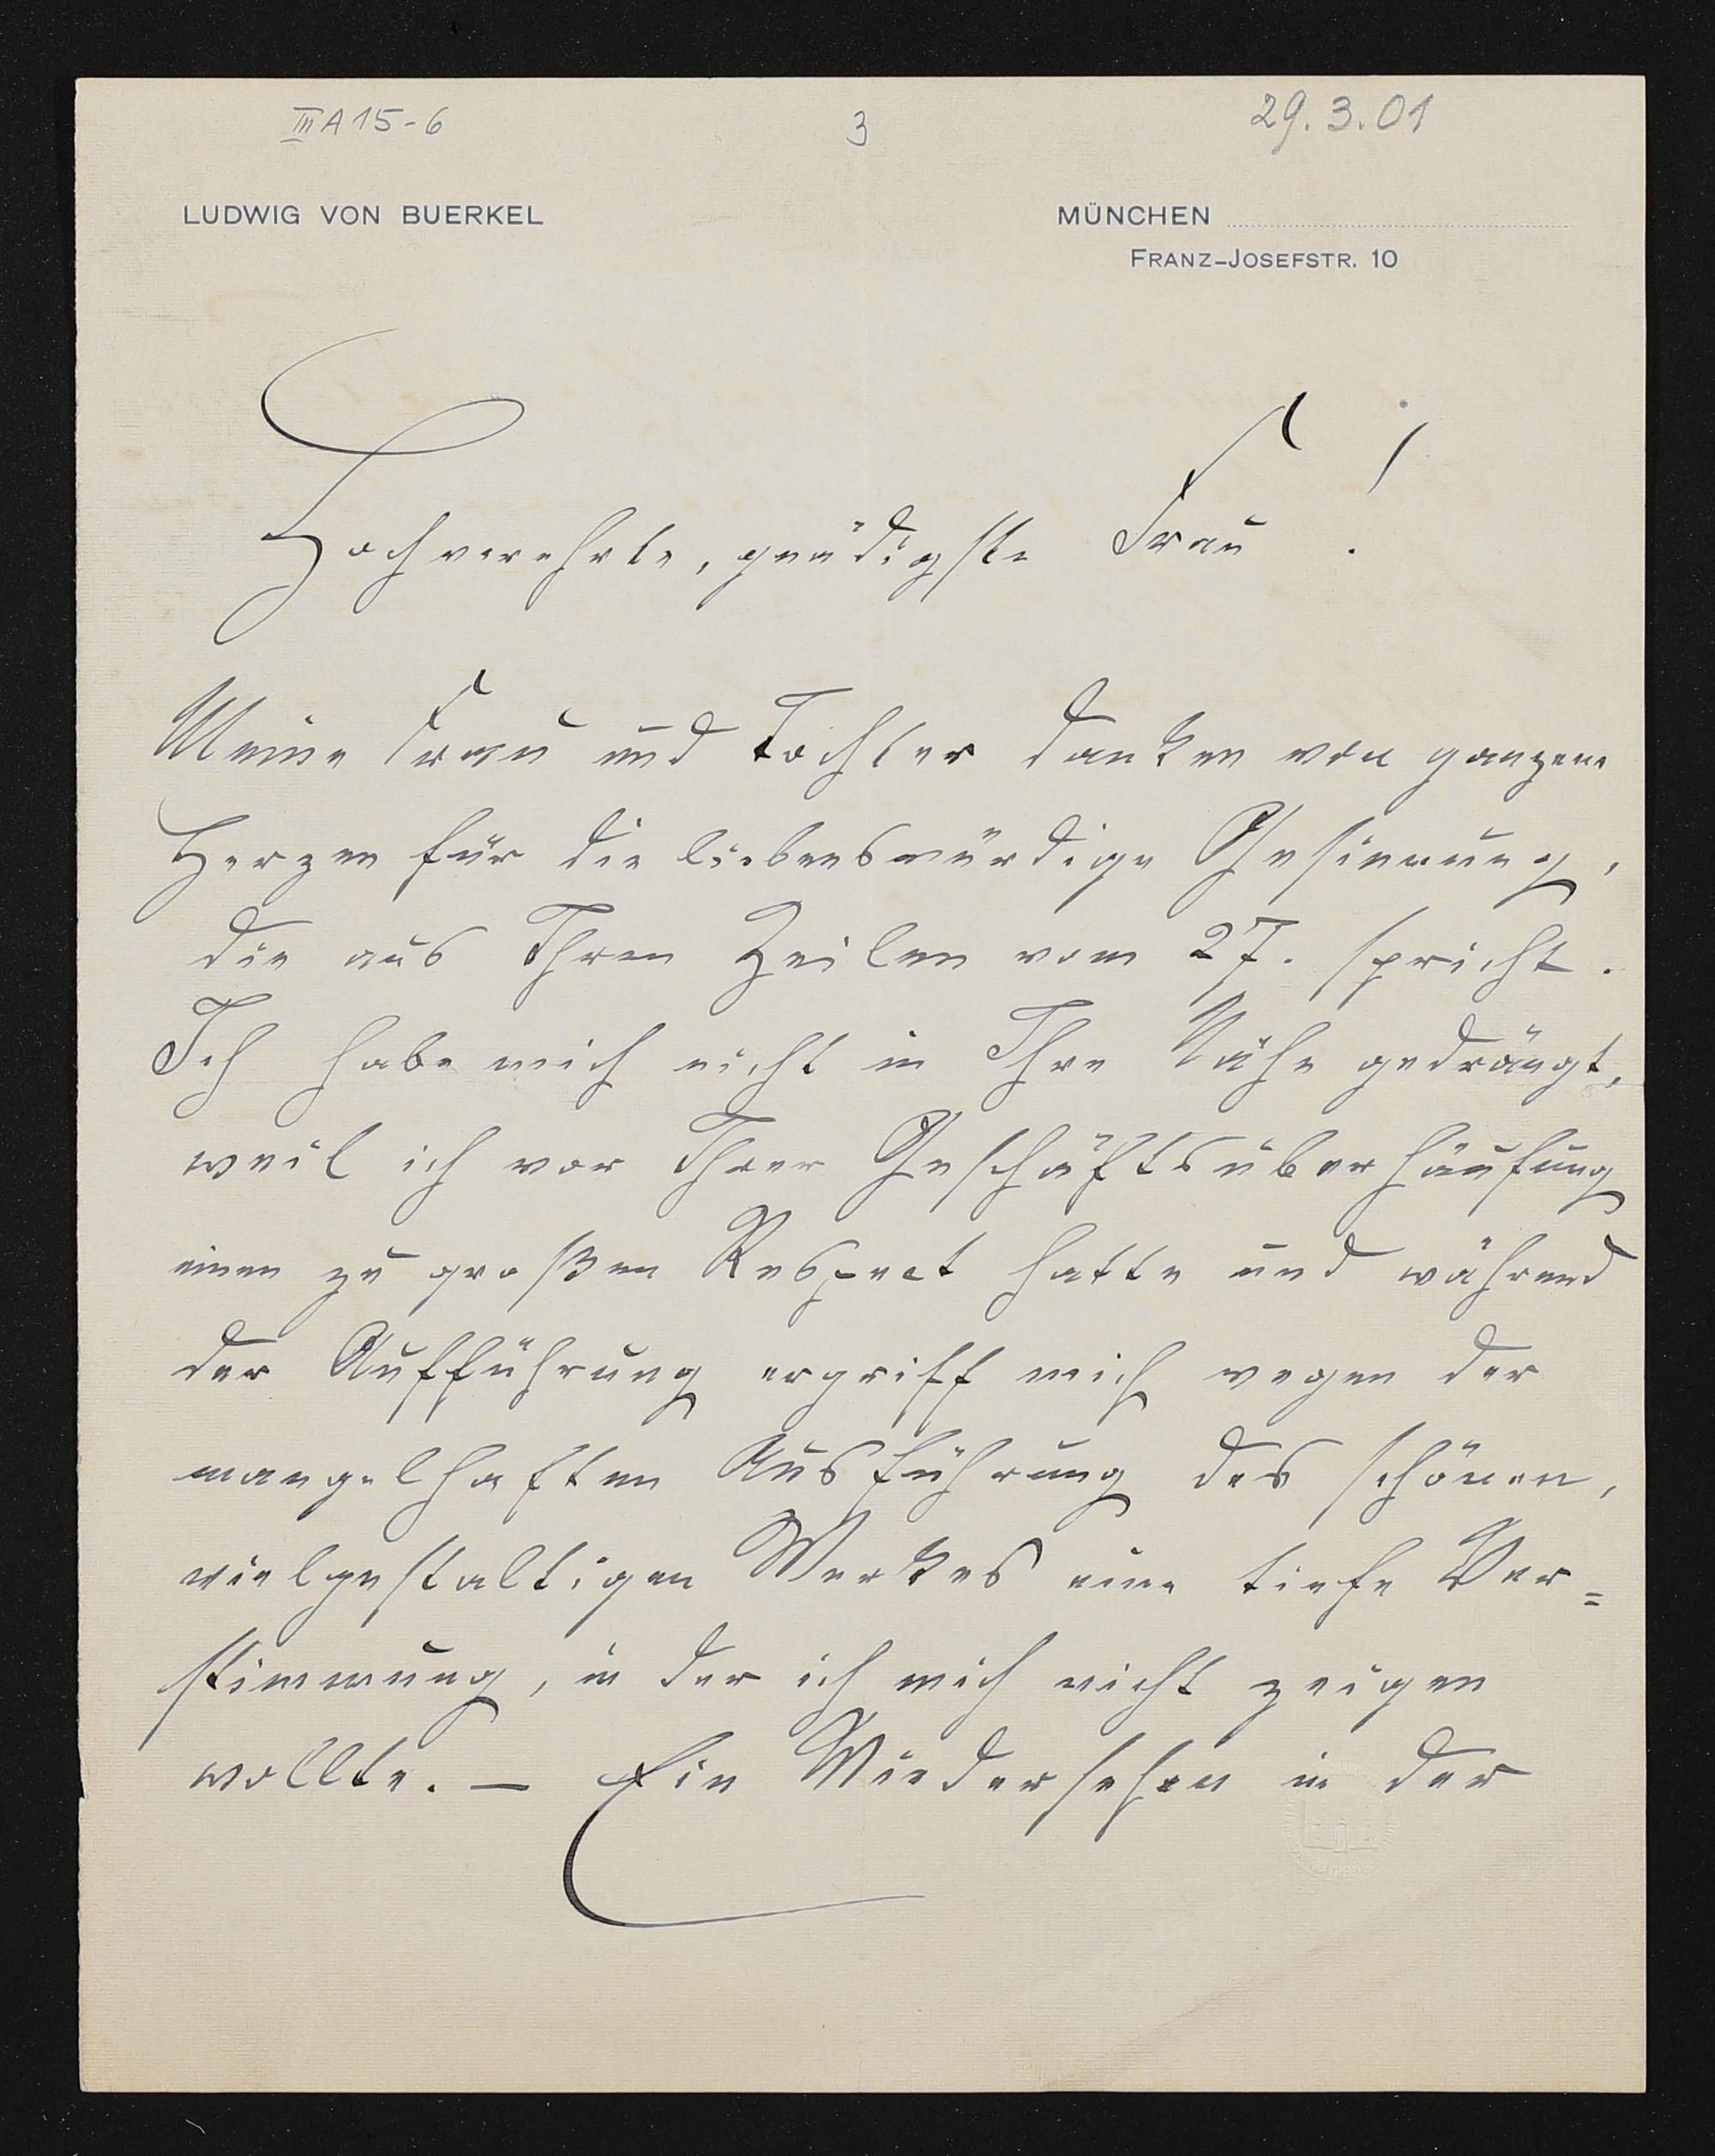 III A 15-6 3 29.3.01
LUDWIG VON BUERKEL MÜNCHEN
FRANZ-JOSEFSTR. 10
Hochverehrte, gnädigste Frau!
Meine Frau und Tochter danken von ganzem
Herzen für die liebenswürdige Gesinnung,
die aus Ihren Zeilen vom 27. spricht.
Ich habe mich nicht in Ihre Nähe gedrängt,
weil ich vor Ihrer Geschäftsüberhäufung
einen zu großen Respect hatte und während
der Aufführung ergriff mich wegen der
mangelhaften Ausführung des schönen,
vielgestaltigen Werkes eine tiefe Ver=
stimmung, in der ich mich nicht zeigen
wollte. — Ein Wiedersehen in der